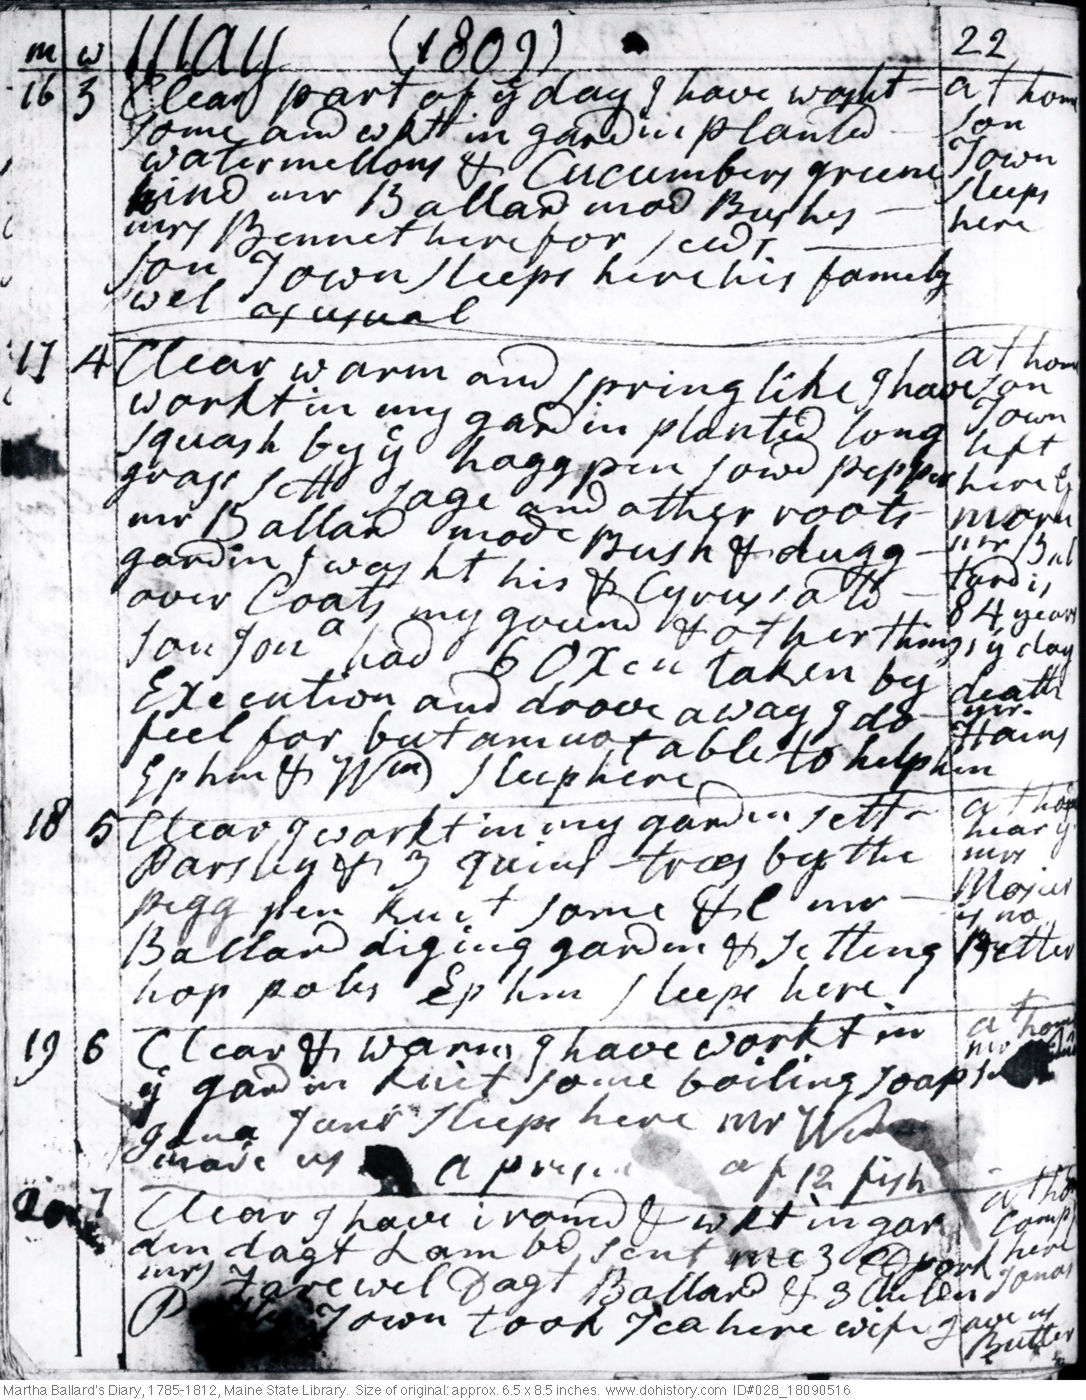 m w May (1809) 22
16 3 Clear part of ÿ day I have washt - at home
some and wkt in gardin planted - son
watermellons & Cucumbers greene Town
kind mr Ballard mod Bushs - sleeps
mrs Bennet here for seeds - here
son Town sleeps here his family
wel as usual
17 4 Clear warm and spring like I have at home
workt in my gardin planted long son Town
squash by ÿ hogg pen sowd pepper left
grass sett sage and other roots here ÿ
mr Ballard mode Bush & dugg - morn
gardin I washt his & Cyrus s old mr Bal
over Coats my gound & other things lard is
son Jona had 6 Oxen taken by 84 years
Execution and drove away I do ÿ day
feel for but am not able to help him death mr
Ephm & Wm sleep here Hains
18 5 Clear I workt in my gardin sett - at home
Parsley & 3 quins - trees by the hear ÿ
pigg pen knit some &c mr - mrs
Ballard diging gardin & setting Mosier
hop poles Ephm sleeps here is no Better
19 6 Clear & warm I have workt in at home
ÿ gardin knit some boiling soap mr
sleeps here mr
made us a of 12 fish
20 7 Clear I have ironed & wkt in gar at home
din dagt Lambd sent me 3 pork here
mrs Farewel Dagt Ballard & 3 Children Jonas
Town took Tea here wife gave us
Butter
Martha Ballard's Diary, 1785-1812, Maine State Library. Size of original: approx. 6.5 x 8.5 inches. www.dohistory.com ID#028_18090516